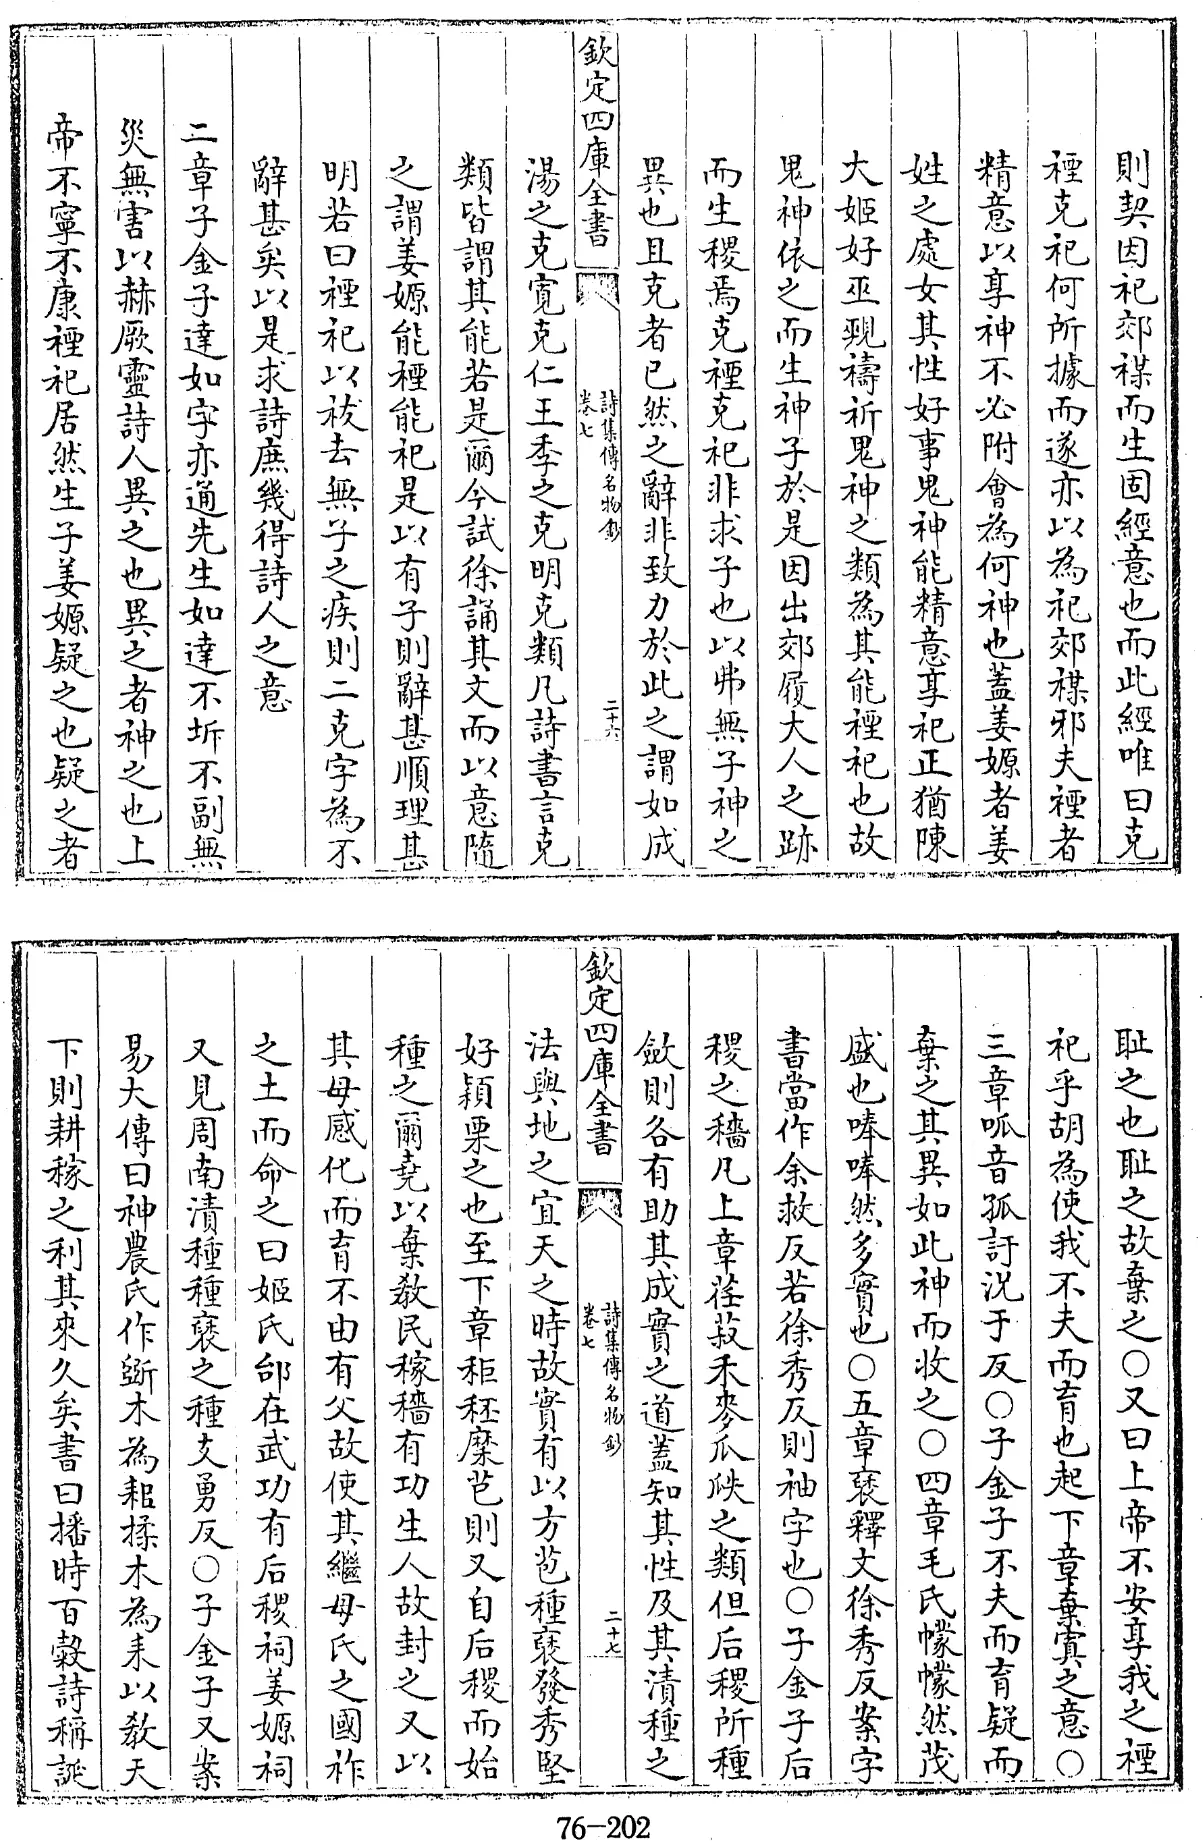 則契因祀郊禖而生固經意也而此經唯曰克
禋克祀何所據而遂亦以為祀郊禖邪夫禋者
精意以享神不必附會為何神也蓋姜嫄者姜
姓之處女其性好事鬼神能精意享祀正猶陳
大姬好巫覡禱祈鬼神之類為其能禋祀也故
鬼神依之而生神子於是因出郊履大人之跡
而生稷焉克禋克祀非求子也以弗無子神之
異也且克者已然之辭非致力於此之謂如成
欽定四庫全書
詩集傳名物鈔
卷七
二十六
湯之克寛克仁王季之克明克類凡詩書言克
類皆謂其能若是爾今試徐誦其文而以意隨
之謂姜嫄能禋能祀是以有子則辭甚順理甚
明若曰禋祀以祓去無子之疾則二克字為不
辭甚矣以是求詩庶幾得詩人之意
二章子金子達如字亦通先生如達不坼不副無
災無害以赫厥靈詩人異之也異之者神之也上
帝不寧不康禋祀居然生子姜嫄疑之也疑之者
恥之也恥之故棄之○又曰上帝不安享我之禋
祀乎胡為使我不夫而育也起下章棄寘之意○
三章呱音孤訏況于反○子金子不夫而育疑而
棄之其異如此神而收之○四章毛氏幪幪然茂
盛也唪唪然多實也○五章褎釋文徐秀反案字
書當作余救反若徐秀反則袖字也○子金子后
稷之穡凡上章荏菽禾麥瓜瓞之類但后稷所種
斂則各有助其成實之道蓋知其性及其漬種之
欽定四庫全書
詩集傳名物鈔
卷七
二十七
法與地之宜天之時故實有以方苞種褎發秀堅
好穎栗之也至下章秬秠穈芑則又自后稷而始
種之爾堯以棄教民稼穡有功生人故封之又以
其母感化而育不由有父故使其繼母氏之國祚
之土而命之曰姬氏邰在武功有后稷祠姜嫄祠
又見周南漬種種褎之種支勇反○子金子又案
易大傳曰神農氏作斲木為耜揉木為耒以教天
下則耕稼之利其來久矣書曰播時百穀詩稱誕
76-202